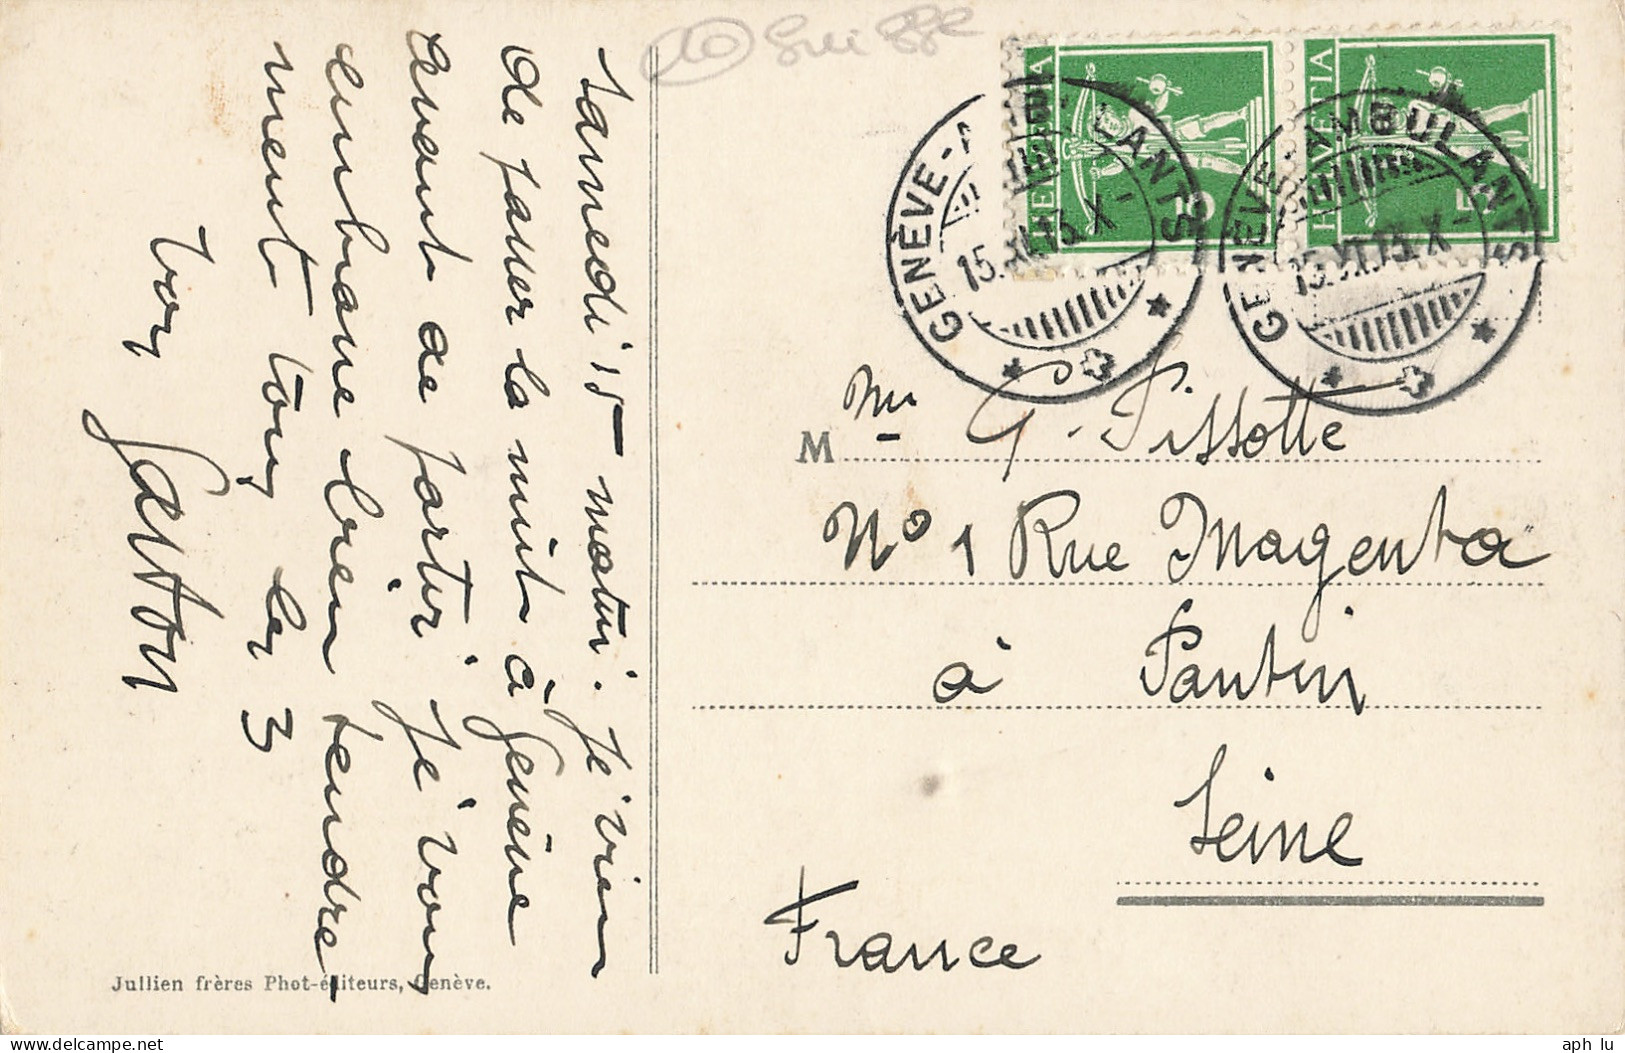 Suisse
HELVETIA
5
HELVETIA
5
GENÈVE-AMBULANTS
15.XI.13.X-
GENÈVE-AMBULANTS
15.XI.13.X-
Samedi 15 matin. Je viens
de passer la nuit à Genève
avant de partir je vous
embrasse bien tendre-
ment tous les 3
Votre
Gaston
M
G. Pissotte
No 1 Rue Magenta
à Pantin
Seine
France
Jullien frères Phot-éditeurs, Genève.
aph lu